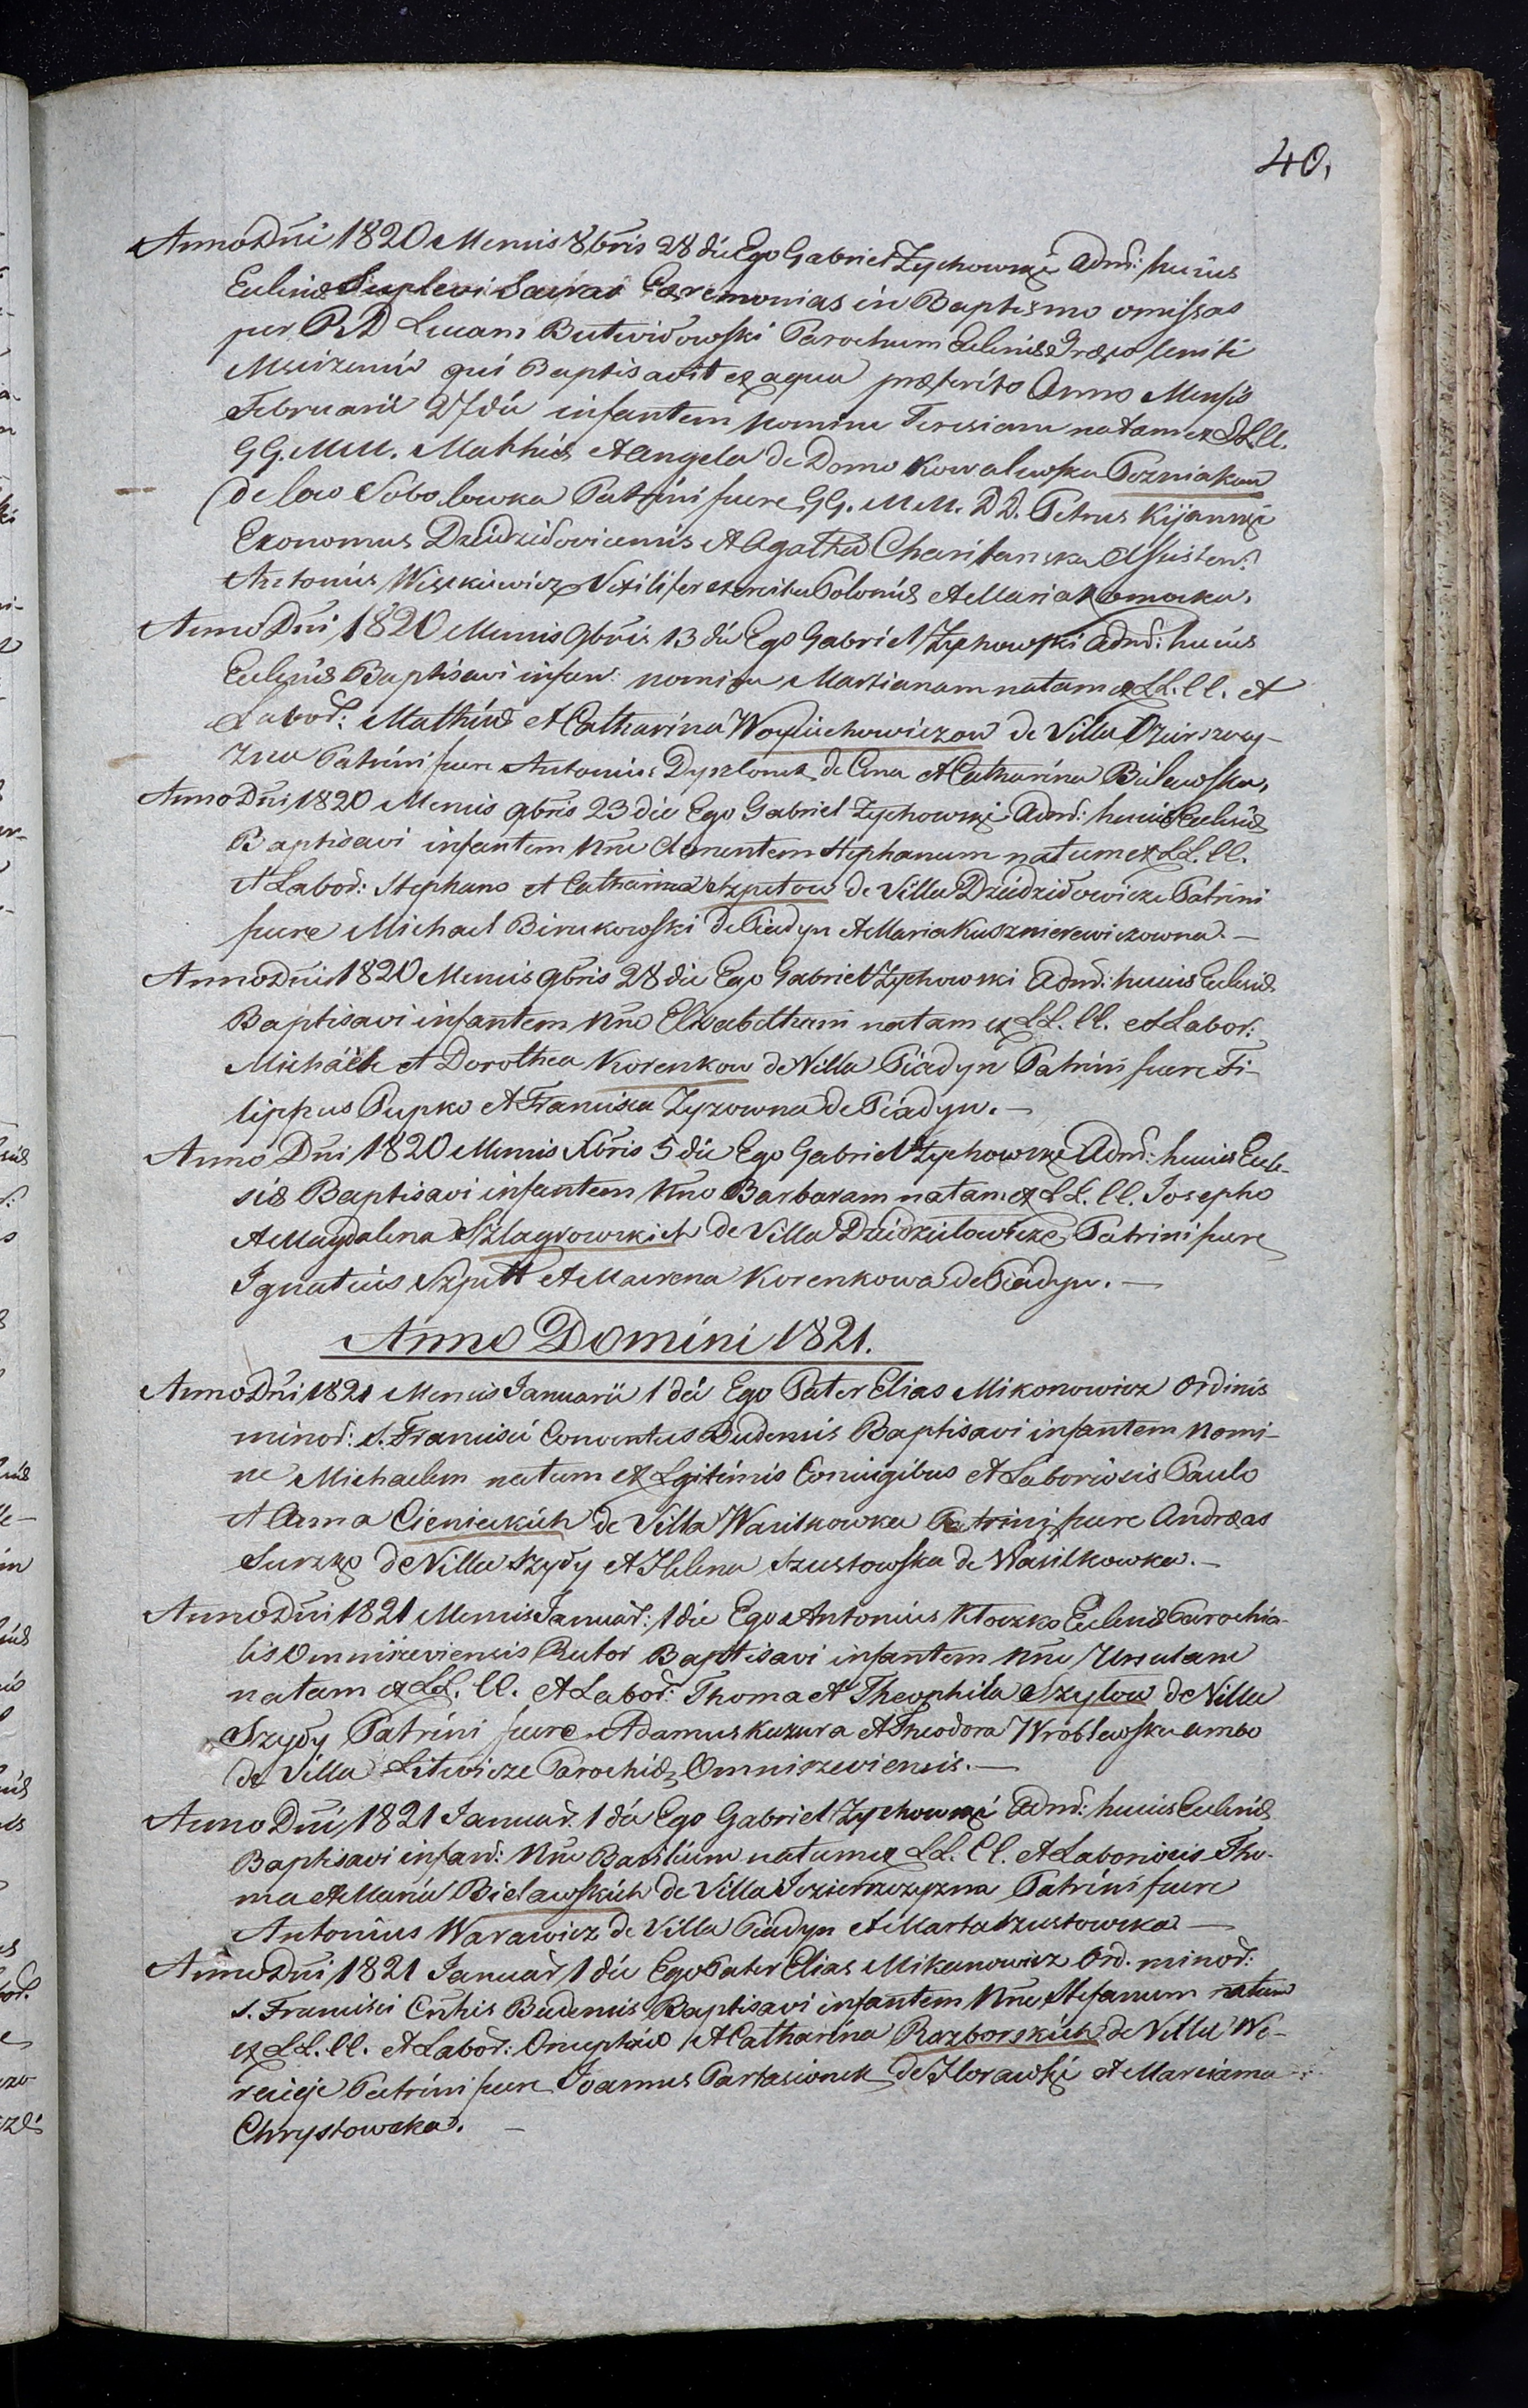 40.
Anno Dni 1820 Mensis 8bris 28 die Ego Gabriel Zychowski Admr: huius
Ecclesiæ Suplevi Sacras Cæremonias in Baptismo omissas
per RD Lucam Butwidowski Parochum Ecclesiæ Græco Uniti
qui Baptisavit ex aqua præterito Anno Mensis
Februarii 27 die infantem nomine Teresiam natam ex LL.CC.
GG. MM. Mathia et Angela de Domo Kowalewska Pozniakow
de loco Sobolowka Patrini fuere GG. MM. DD. Petrus Kijanski
Economus Dziedzidovicensis et Agatha Charitanska Assisten:
Antonius Wiszkiewicz Vexilifer exercitus Poloniæ et Maria
Anno Dni 1820 Mensis 9bris 13 die Ego Gabriel Zychowski Admr: huius
Ecclesiæ Baptisavi infan: nomine Marianam natam ex LL.CC. et
Labor: Mathia et Catharina Woyciechowiczow de Villa
zna Patrini fuere Antonius de et Catharina Bielawska,
Anno Dni 1820 Mensis 9bris 23 die Ego Gabriel Zychowski Admr: huius Ecclesiæ
Baptisavi infantem Nne Clementem Stephanum natum ex LL.CC.
et Labor: Stephano et Catharina Szpetow de Villa Dziedzidowicze Patrini
fuere Michael Birukowski de Piadyn et Maria Kusznierewiczowna. —
Anno Dni 1820 Mensis 9bris 28 die Ego Gabriel Zychowski Admr: huius Ecclesiæ
Baptisavi infantem Nne Elisabetham natam ex LL.CC. et Labor:
Michaële et Dorothea Korenkow de Villa Piadyn Patrini fuere Fi-
lippus Pupko et Francisca Zyzowna de Piadyn. —
Anno Dni 1820 Mensis Xbris 5 die Ego Gabriel Zychowski Admr: huius Eccle-
siæ Baptisavi infantem Nne Barbaram natam ex LL.CC. Josepho
et Magdalena Szlagrowskich de Villa Dziedzilowicze Patrini fuere
Ignatius Szpett et Korenkowa de Piadyn. —
Anno Domini 1821.
Anno Dni 1821 Mensis Januarii 1 die Ego Pater Elias Mikonowicz Ordinis
minor: S. Francisci Conventus Budensis Baptisavi infantem Nomi-
ne Michaelem natum ex Lgitimis Coniugibus et Laboriosis Paulo
et Anna Cienieckich de Villa Wasilkowka Patrini fuere Andræas
Surzko de Villa Szydy et Helena Szustowska de Wasilkowka. —
Anno Dni 1821 Mensis Januar: 1 die Ego Antonius Kłoczko Ecclesiæ Parochia-
lis Omniszeviensis Rector Baptisavi infantem Nne Ursulam
natam ex LL.CC. et Labor: Thoma et Theophila Szylow de Villa
Szydy Patrini fuere Adamus Kuzura et Theodora Wróblewska ambo
de Villa Litwicze Parochiæ Omniszeviensis. —
Anno Dni 1821 Januar. 1 die Ego Gabriel Zychowski Admr: huius Ecclesiæ
Baptisavi infan: Nne Basilium natum ex LL.CC. et Laboriosis Tho-
ma et Maria Bielawskich de Villa Jezierszczyzna Patrini fuere
Antonius Warawicz de Villa Piadyn et Marta Szustowska —
Anno Dni 1821 Januar 1 die Ego Pater Elias Mikanowicz Ord. minor:
S. Francisci Cntus Budensis Baptisavi infantem Nne Stefanum natum
ex LL.CC. et Labor: Onuphrio et Catharina Razborskich de Villa We-
reicje Patrini fuere Joannes Partasionek de Horawki et Marciana
Chrystowska. —